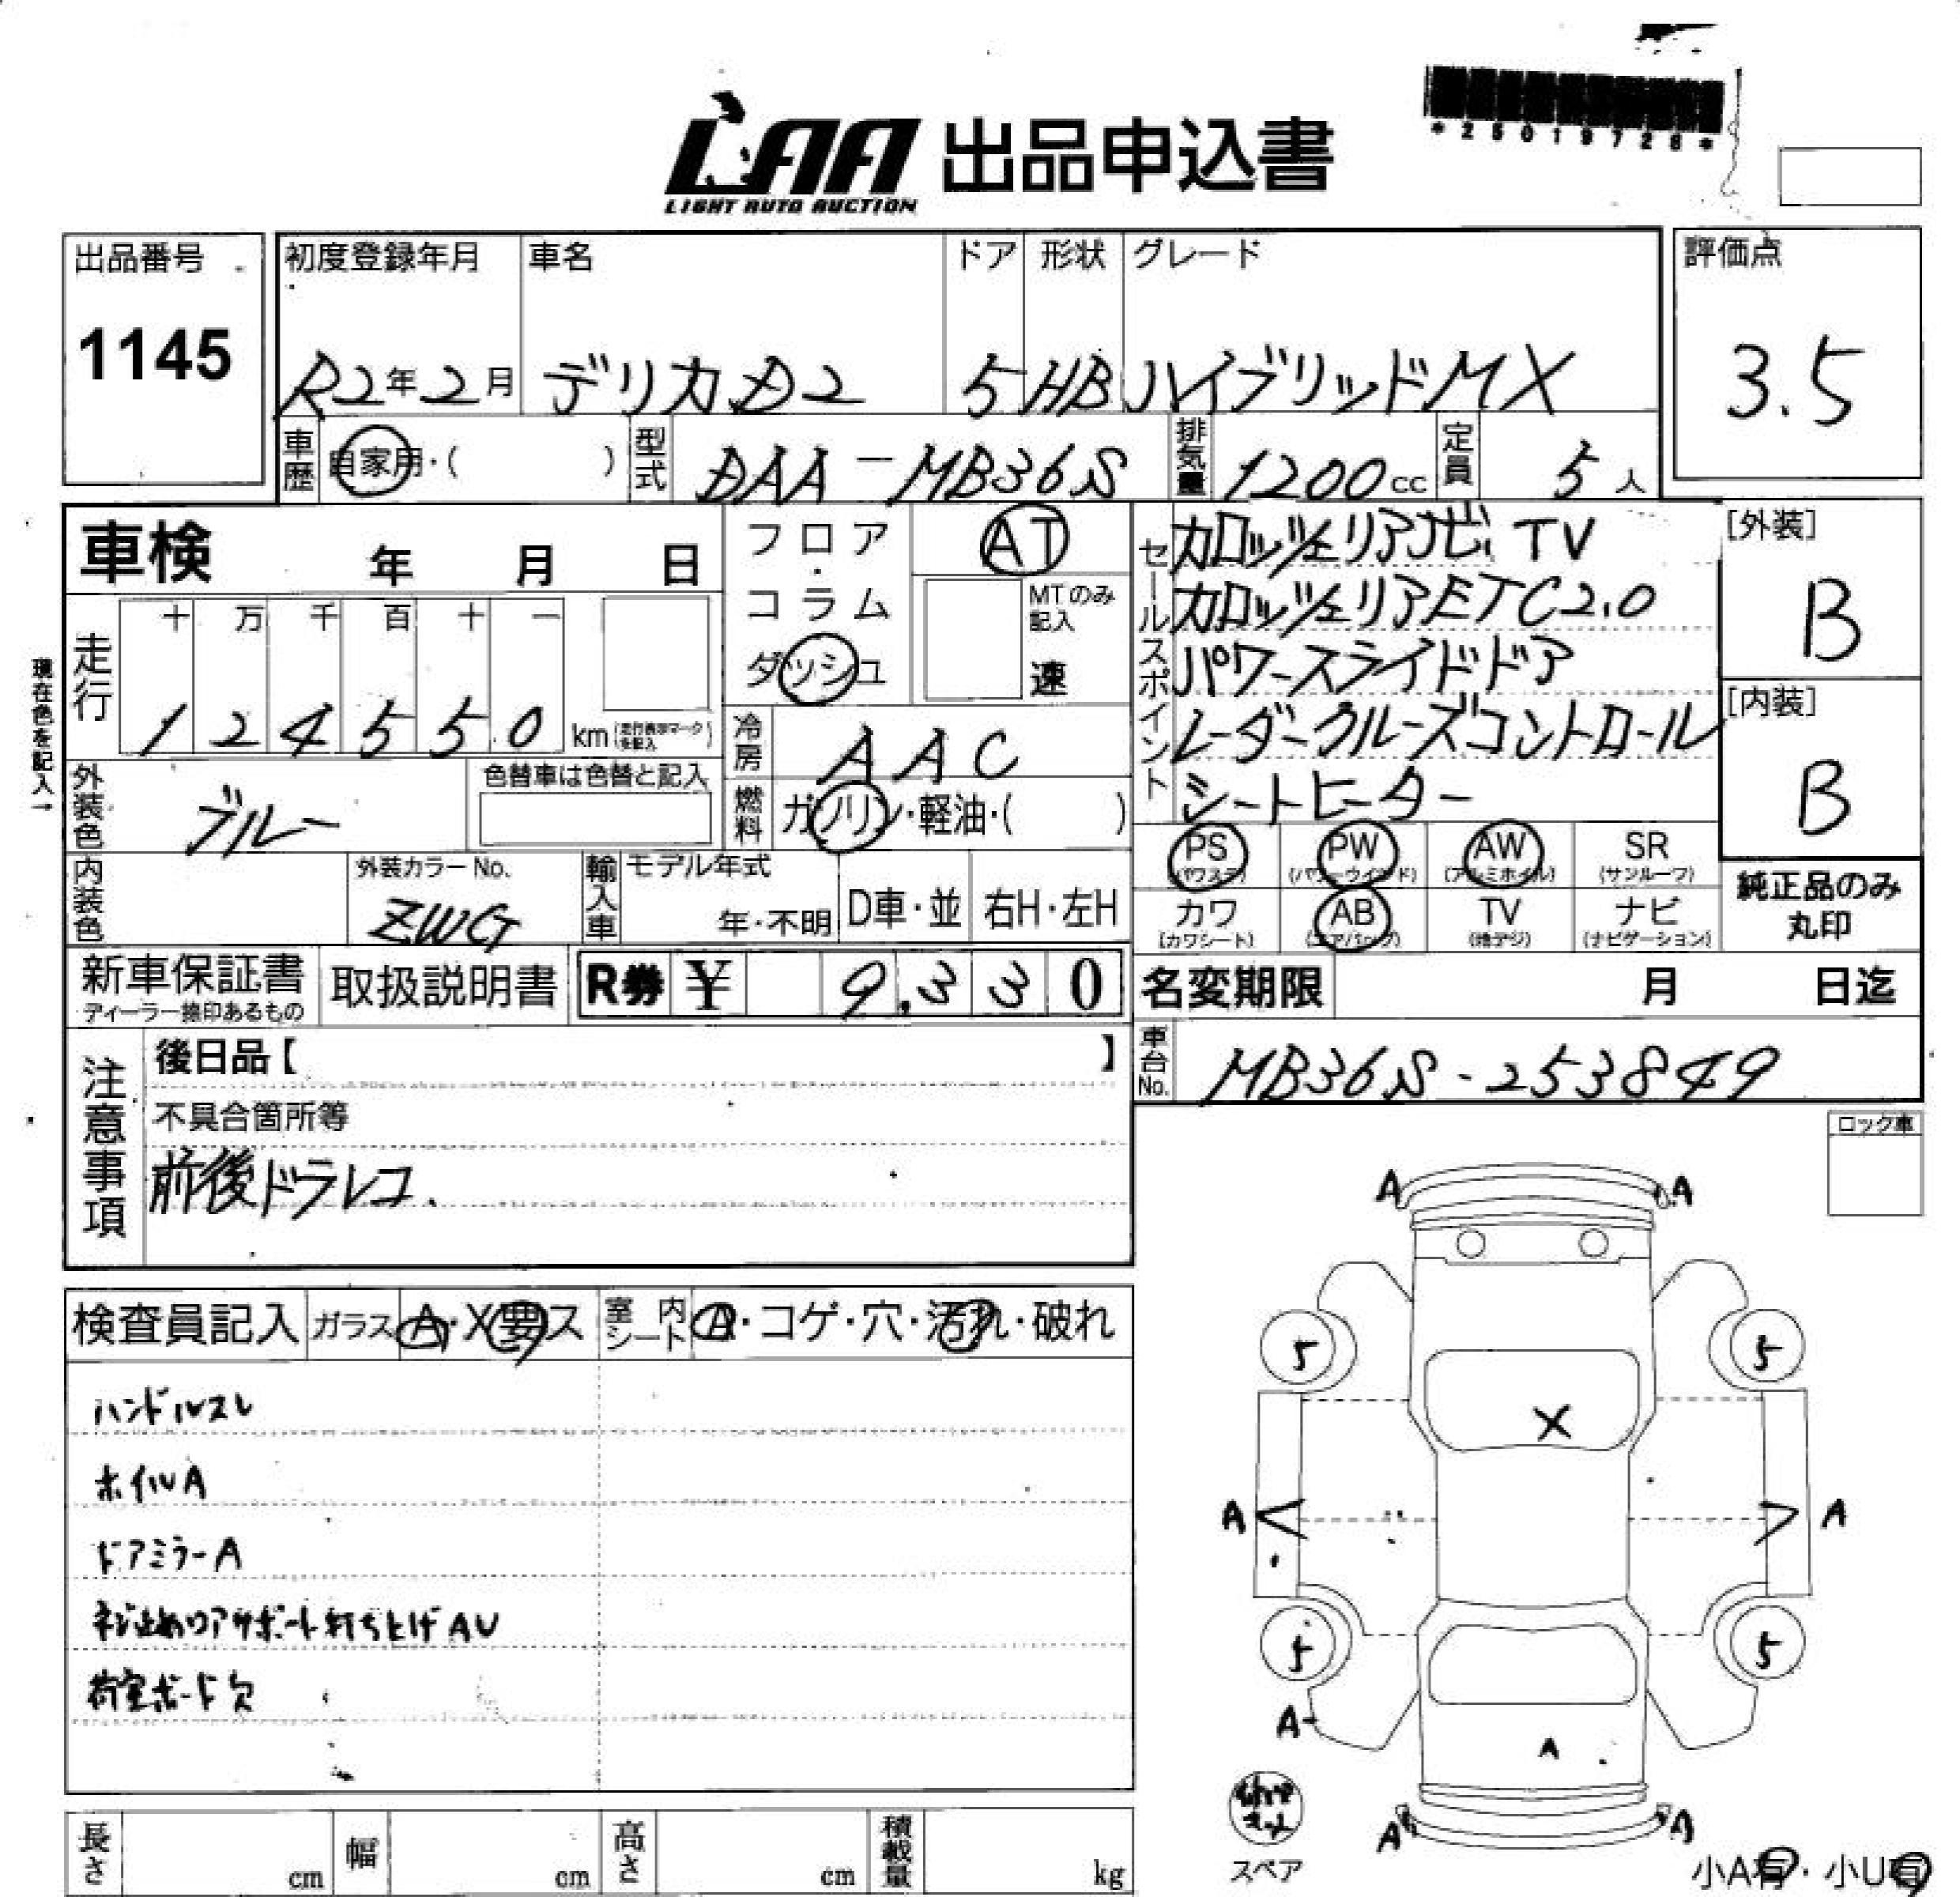 LAA 出品申込書
LIGHT AUTO AUCTION
*25019728*
出品番号 1145
初度登録年月 R2年2月
車名 デリカD2
ドア 5
形状 HB
グレード ハイブリッドMX
評価点 3.5
車歴 自家用・( )
型式 DAA-MB36S
排気量 1200cc
定員 5人
車検 年 月 日
フロア・コラム ダッシュ
AT
MTのみ記入 速
走行 十 万 千 百 十 一
1 2 4 5 5 0 km (走行表示マークを記入)
現在色を記入→
冷房 AAC
燃料 ガソリン・軽油・( )
外装色 ブルー
色替車は色替と記入
内装色
外装カラーNo. ZWG
輸入車 モデル年式 年・不明 D車・並 右H・左H
セールスポイント
カロッツェリアナビ.TV
カロッツェリアETC2.0
パワースライドドア
レーダークルーズコントロール
シートヒーター
[外装] B
[内装] B
PS (パワステ) PW (パワーウインド) AW (アルミホイル) SR (サンルーフ)
カワ (カワシート) AB (エアバッグ) TV (地デジ) ナビ (ナビゲーション)
純正品のみ丸印
新車保証書 ディーラー捺印あるもの
取扱説明書
R券 ¥ 9,330
名変期限 月 日迄
車台No. MB36S-253849
注意事項
後日品【 】
不具合箇所等
前後ドラレコ.
ロック車
検査員記入 ガラス A・X要ス 室内シート A・コゲ・穴・汚れ・破れ
ハンドルスレ
ホイルA
ドアミラーA
ネジ止めリアサポート打ち上げAU
荷室ボード欠
A A
5 5
X
A A
5 5
A
A
A A
スペア
小A有・小U有
長さ cm 幅 cm 高さ cm 積載量 kg